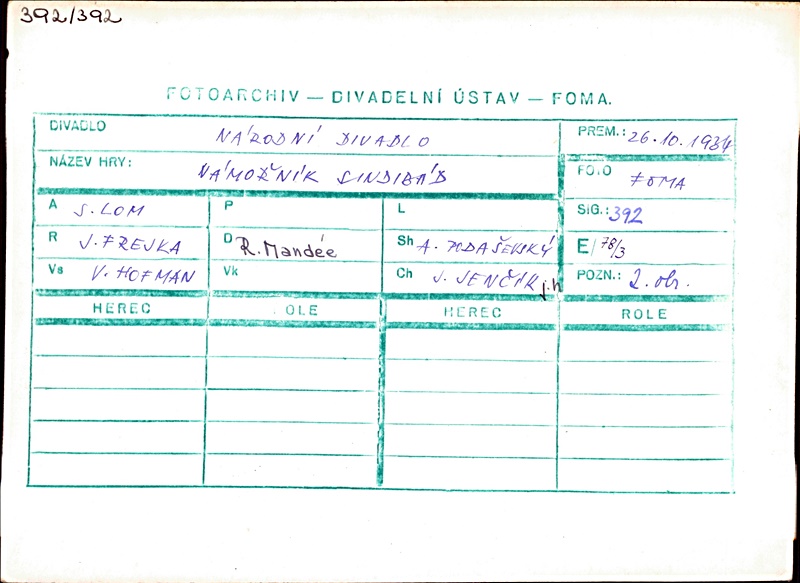 392/392
FOTOARCHIV — DIVADELNÍ ÚSTAV — FOMA.
DIVADLO NÁRODNÍ DIVADLO PREM.: 26.10.1934
NÁZEV HRY: NÁMOŘNÍK SINDIBÁD FOTO FOMA
A S. LOM P L SIG.: 392
R J. FREJKA D R. Mandée Sh A. PODAŠEVSKÝ E/ 78/3
Vs V. HOFMAN Vk Ch J. JENČÍK j.h POZN.: 2. obr.
HEREC OLE HEREC ROLE